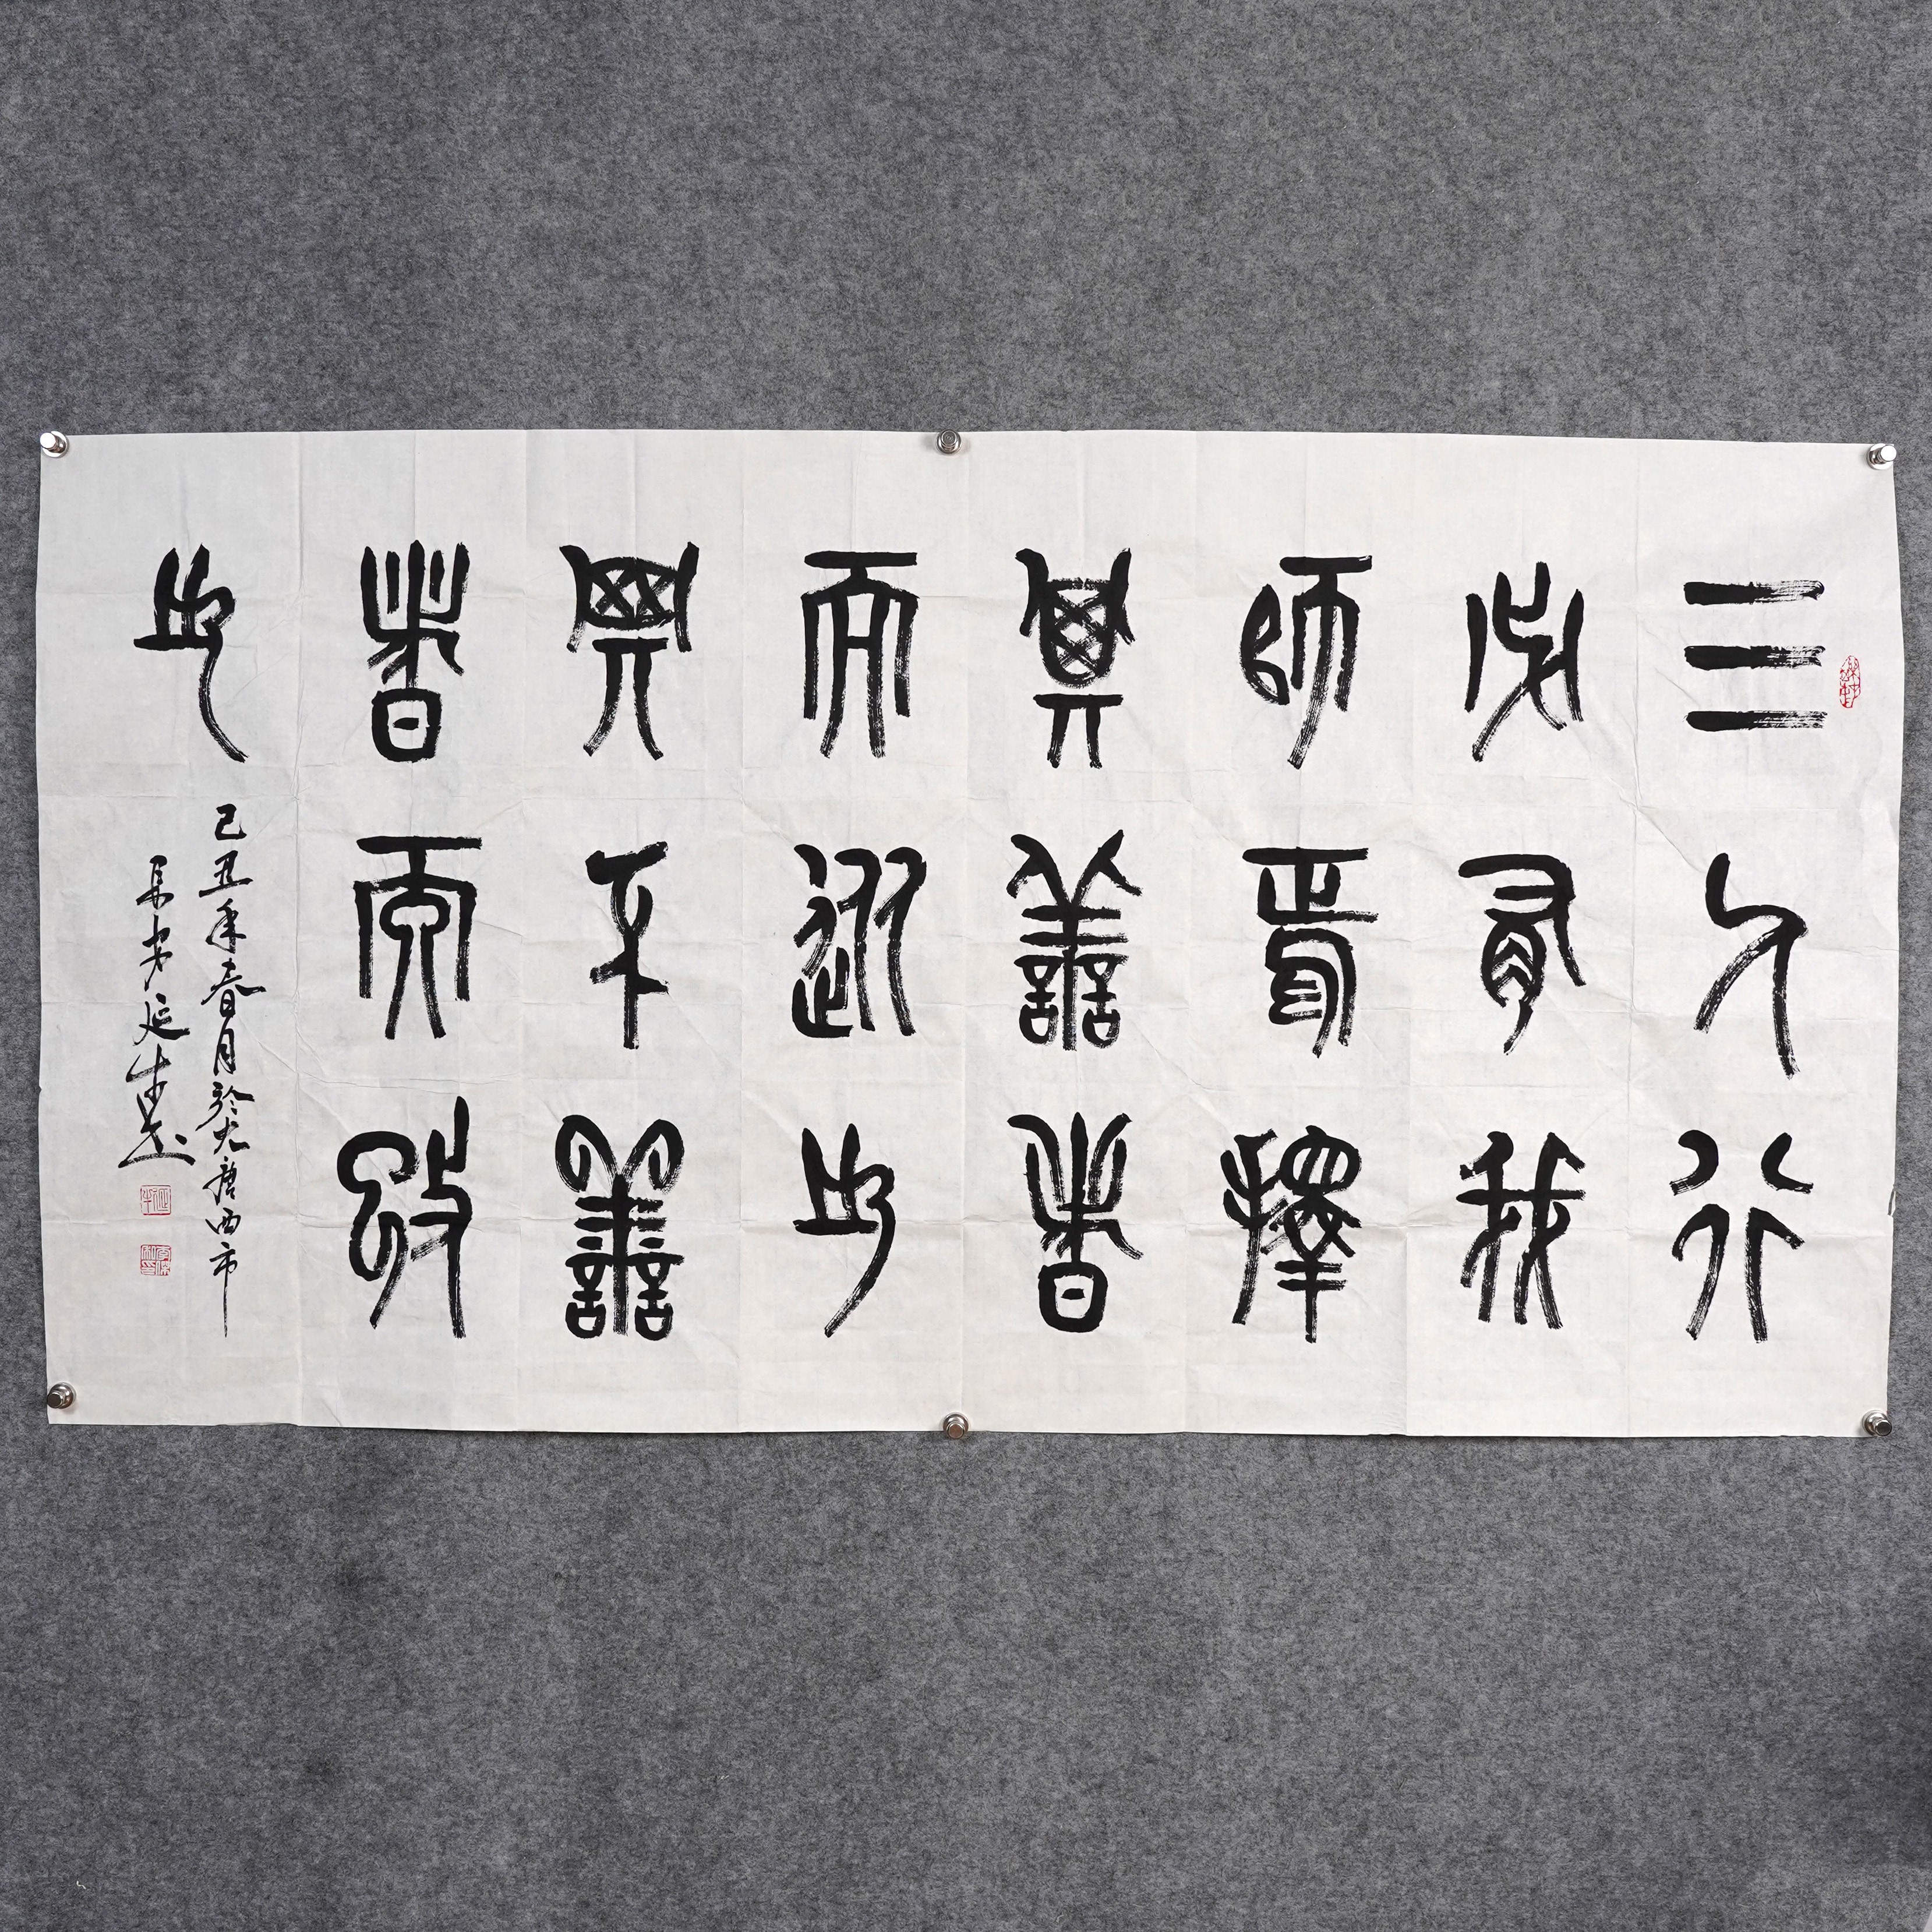 三人行
必有我
師焉擇
其善者
而從之
其不善
者而改
之
己丑年春月於大唐西市
延